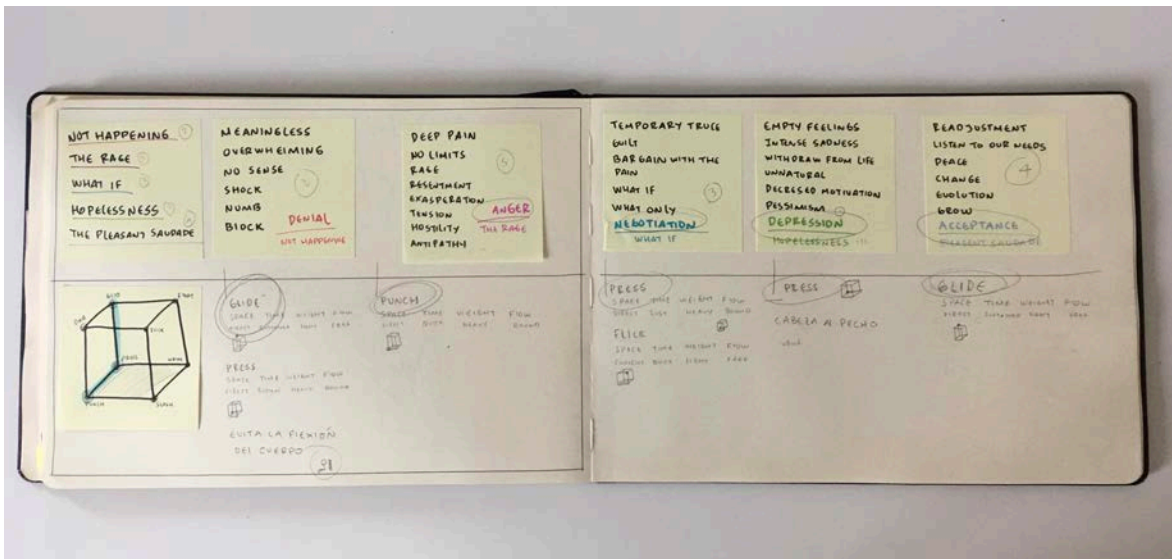 NOT HAPPENING
THE RAGE
WHAT IF
HOPELESSNESS
THE PLEASANT SAUDADE
MEANINGLESS
OVERWHELMING
NO SENSE
SHOCK
NUMB
BLOCK
DENIAL
NOT HAPPENING
DEEP PAIN
NO LIMITS
RAGE
RESENTMENT
EXASPERATION
TENSION
HOSTILITY
ANTIPATHY
ANGER
THE RAGE
TEMPORARY TRUCE
GUILT
BARGAIN WITH THE
PAIN
WHAT IF
WHAT ONLY
NEGOTIATION
WHAT IF
3
EMPTY FEELINGS
INTENSE SADNESS
WITHDRAW FROM LIFE
UNNATURAL
DECRESED MOTIVATION
PESSIMISM
DEPRESSION
HOPELESSNESS
READJUSTMENT
LISTEN TO OUR NEEDS
PEACE
CHANGE
EVOLUTION
GROW
4
ACCEPTANCE
PLEASENT SAUDADE
GLIDE
PUNCH
GLIDE
SPACE TIME WEIGHT FLOW
PRESS
SPACE TIME WEIGHT FLOW
EVITA LA FLEXIÓN
DEL CUERPO
PUNCH
SPACE TIME WEIGHT FLOW
DIRECT HEAVY BOUND
PRESS
SPACE TIME WEIGHT FLOW
HEAVY BOUND
FLICK
SPACE TIME WEIGHT FLOW
PRESS
CABEZA AL PECHO
GLIDE
SPACE TIME WEIGHT FLOW